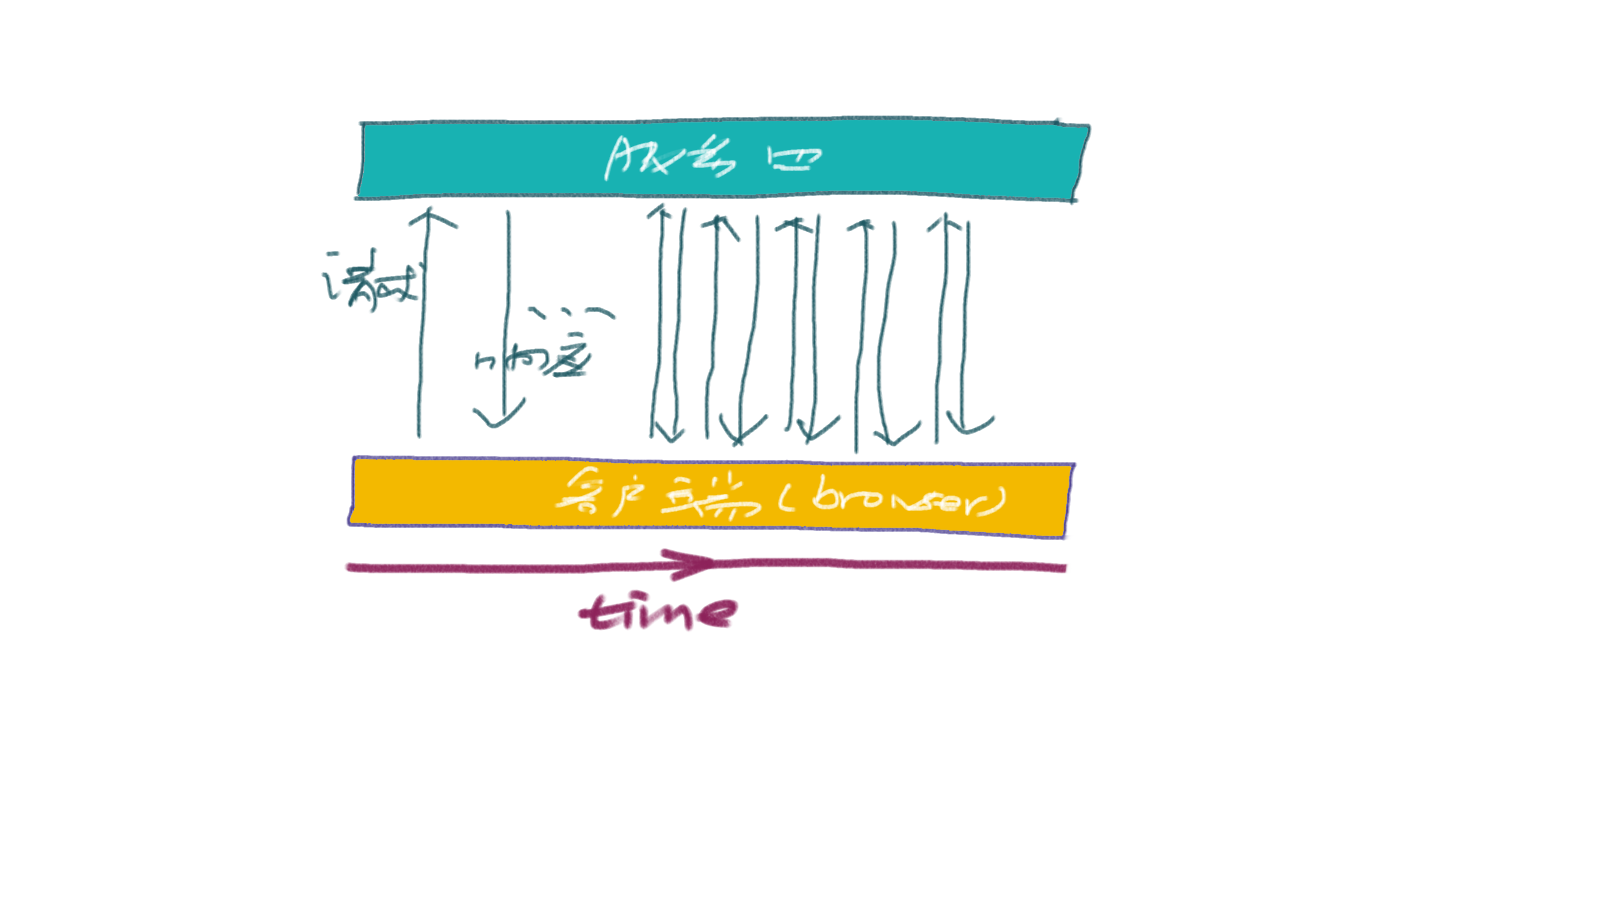 服务
请求
...
响应
客户端(browser)
time